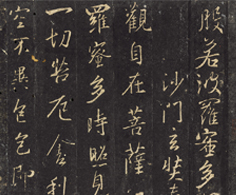 般若波羅蜜多
沙門玄奘
觀自在菩薩
羅蜜多時照見
一切苦厄舍利
空不異色色即